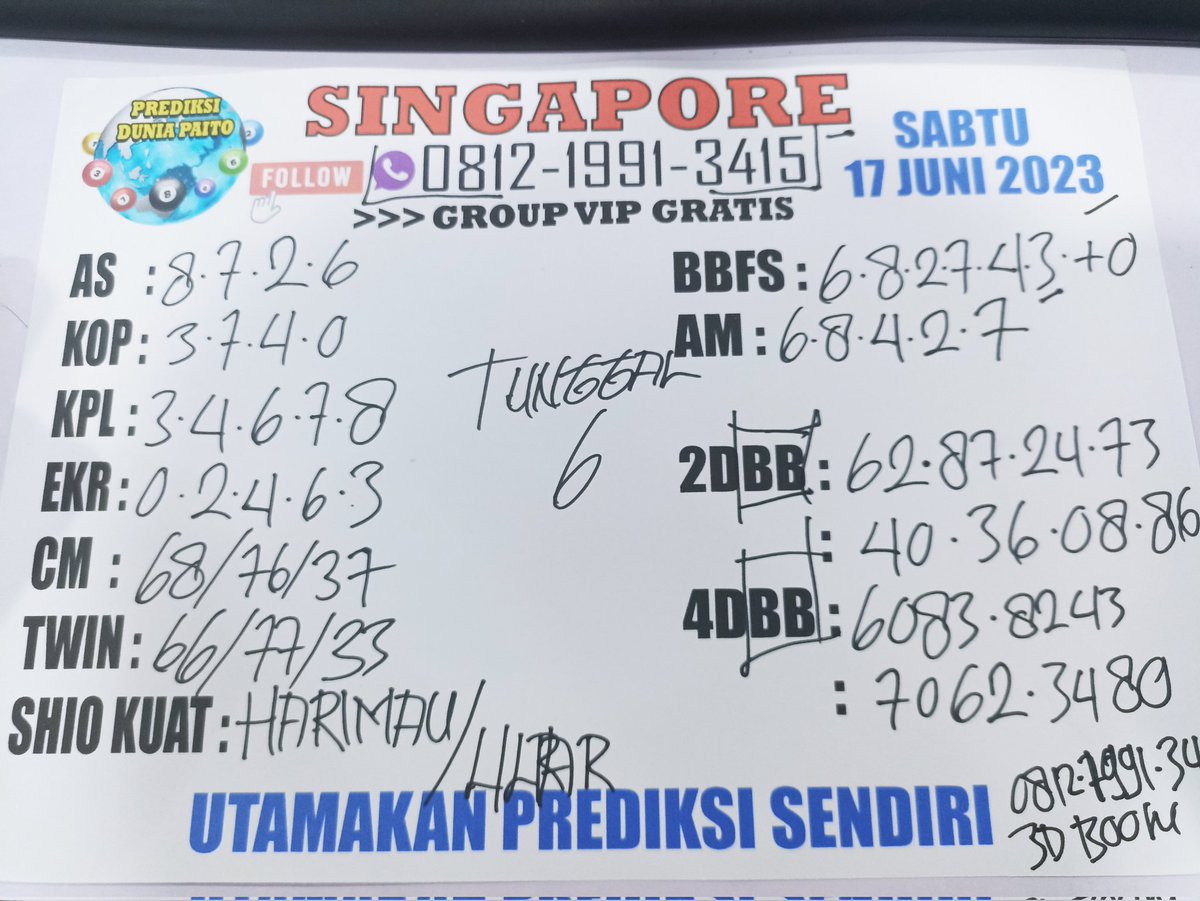 PREDIKSI
DUNIA PAITO
SINGAPORE
FOLLOW
0812-1991-3415
>>> GROUP VIP GRATIS
SABTU
17 JUNI 2023
AS : 8.7.2.6
KOP : 3.7.4.0
KPL : 3.4.6.7.8
EKR : 0.2.4.6.3
CM : 68/76/37
TWIN : 66/77/33
SHIO KUAT : HARIMAU/
TUNGGAL
6
BBFS : 6.8.2.7.4.3.+0
AM : 6.8.4.2.7
2DBB : 62.87.24.73
: 40.36.08.86
4DBB : 6083.8243
: 7062.3480
UTAMAKAN PREDIKSI SENDIRI
0812.1991.34
3D